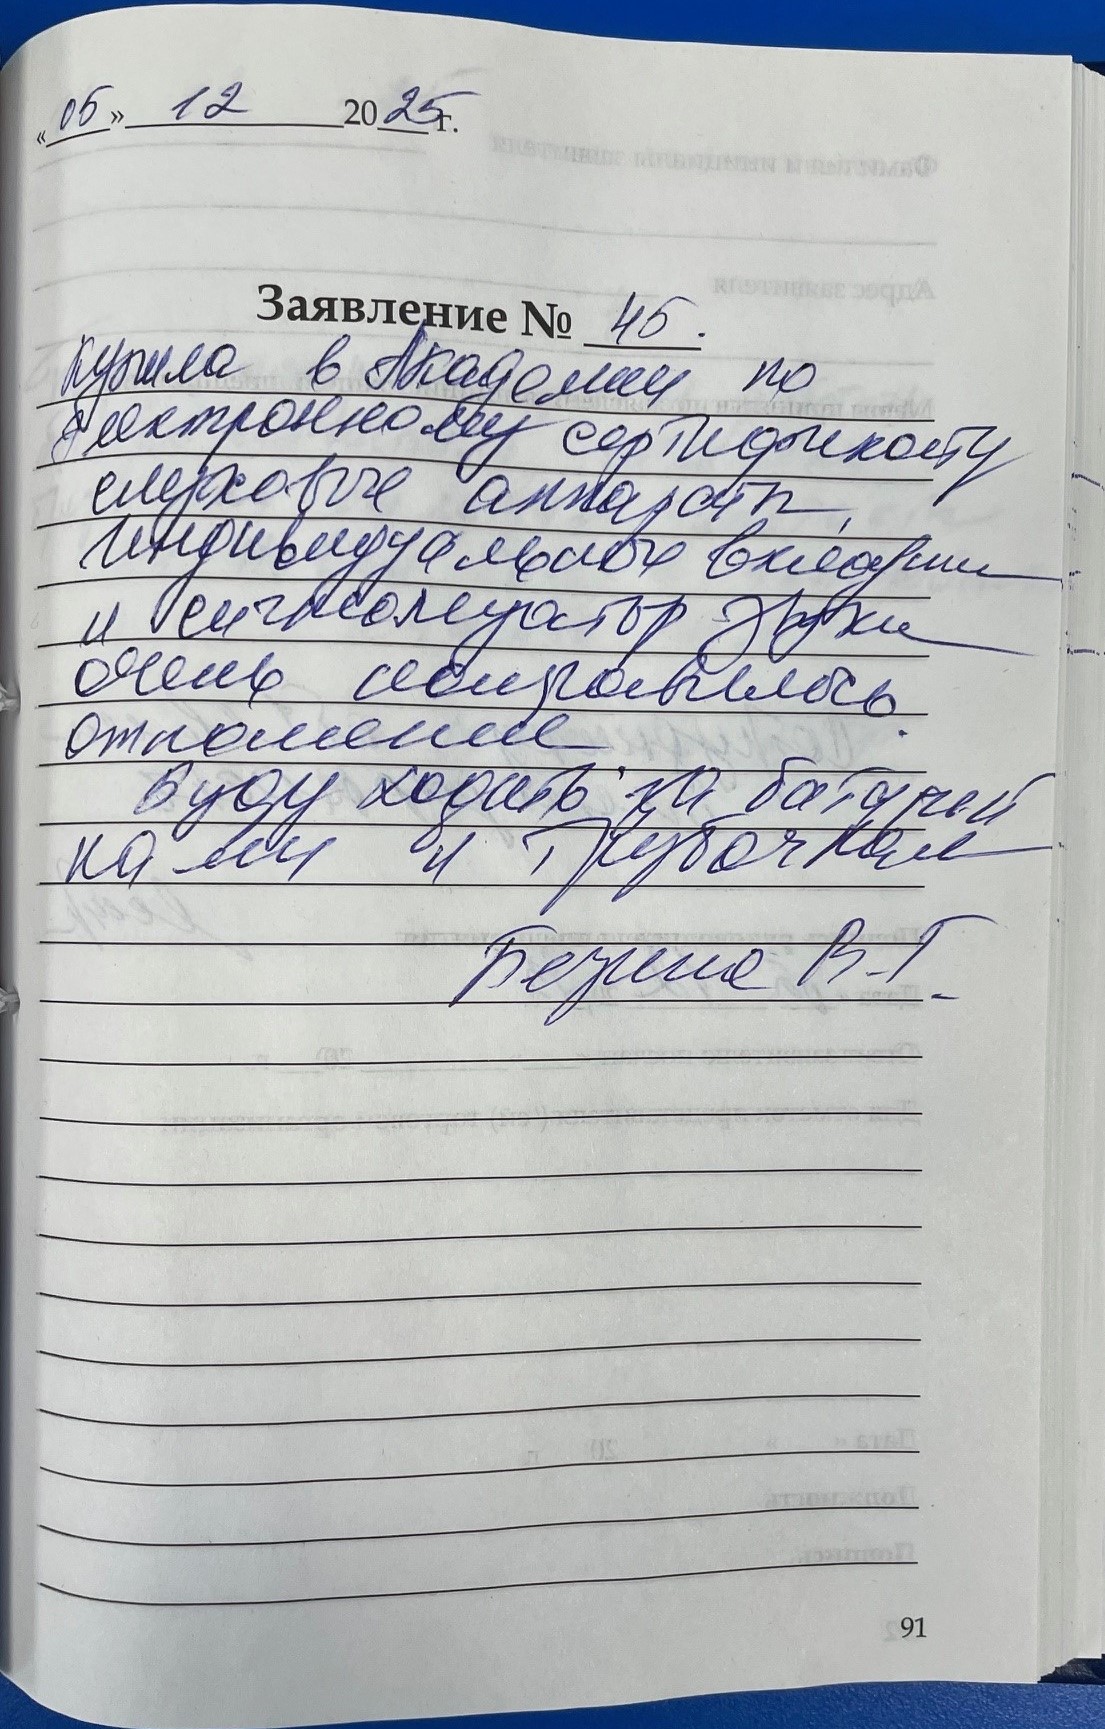 «05» 12 2025 г.
Заявление № 45.
Купила в Академии по
электронному сертификату
слуховые аппараты,
индивидуальные вкладыши
и сигнализатор звука
очень понравилось
отношение.
Буду ходить за батарей
ками и трубочками
В.Г.
91